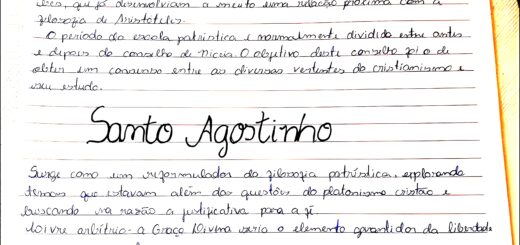 eles, que já desenvolviam a muito uma relação próxima com a
filosofia de Aristóteles.
O período da escola patrística é normalmente dividido entre antes
e depois do conselho de Niceia. O objetivo deste conselho foi o de
obter um consenso entre as diversas vertentes do cristianismo e
seu estudo.
Santo Agostinho
Surge como um reformulador da filosofia patrística, explorando
temas que estavam além das questões do platonismo cristão e
buscando na razão a justificativa para a fé.
Livre arbítrio - a Graça Divina seria o elemento garantidor da liberdade